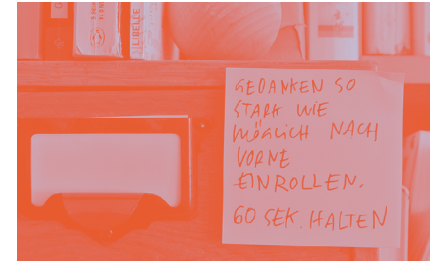 LIBELLE
GEDANKEN SO
STARK WIE
MÖGLICH NACH
VORNE
EINROLLEN.
60 SEK. HALTEN